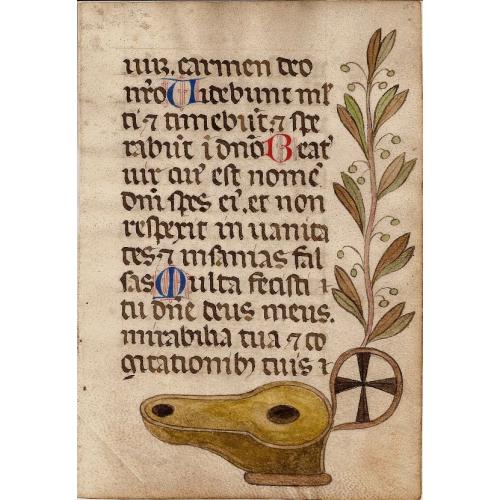 uiz. carmen deo
nr̄o Uidebunt ml̄
ti ⁊ timebūt ⁊ spe
rabūt ī dn̄o Beat᷒
uir cui᷒ est nomē
dn̄i spes ei᷒. et non
respexit in uanita
tes ⁊ insanias fal
sas Multa fecisti ⁊
tu dn̄e deus meus.
mirabilia tua ⁊ co
gitationib᷒ tuis ⁊